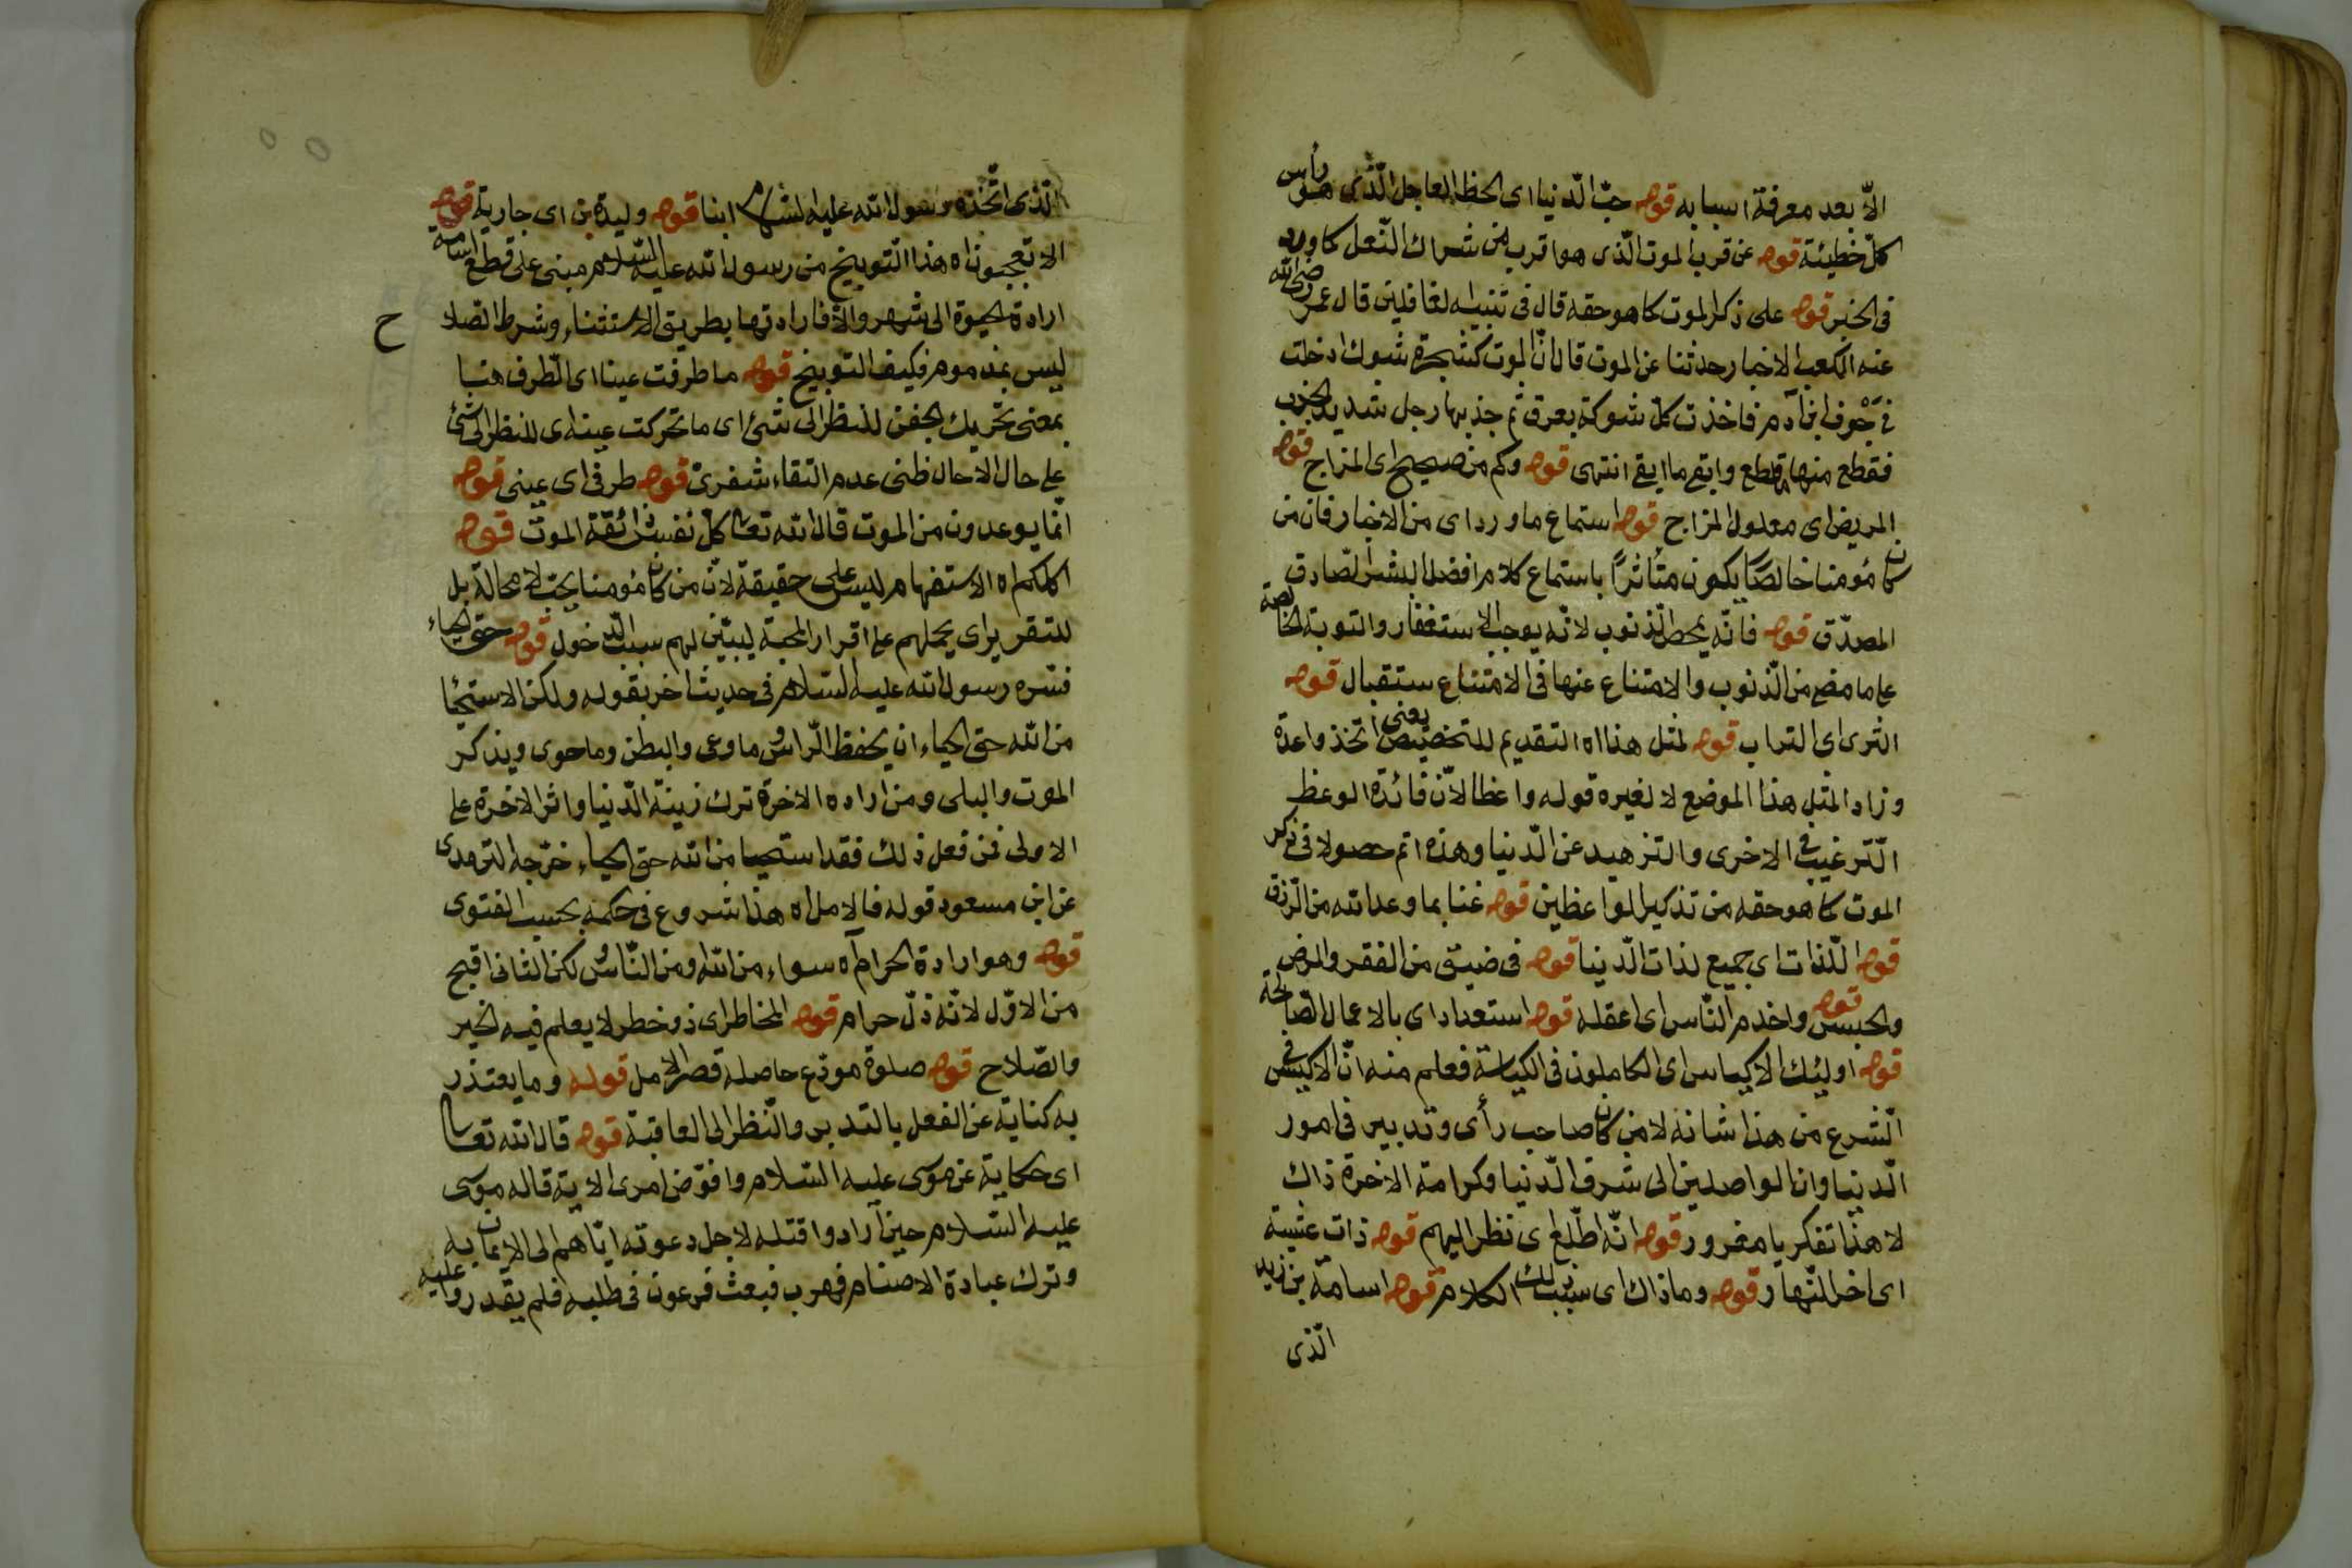 الّا بعد معرفة اسبابه قوله حبّ الدّنيا اى الحظ العاجل الّذى هو رأس
كلّ خطيئة قوله عن قرب الموت الّذى هو اقرب من شراك النّعل كما ورد
فى الخبر قوله على ذكر الموت كما هو حقه قال فى تنبيه الغافلين قال عمر رضى الله
عنه لكعب الاخبار حدثنا عن الموت قال انّ الموت كشجرة شوك ادخلت
فى جوف ابن آدم فاخذت كلّ شوكة بعرق ثم جذبها رجل شديد الجذب
فقطع منها ما قطع وابقى ما ابقى انتهى قوله وكم من صحيح اى المزاج قوله
المريض اى معلول المزاج قوله استماع ما ورد اى من الاخبار فان من
كان مؤمنا خالصًا يكون متأثرًا باستماع كلام افضل البشر الصّادق
المصدّق قوله فانّه يمحص الذنوب لانّه يوجب الاستغفار والتوبة الخالصة
على ما مضى من الذّنوب والامتناع عنها فى الامتناع ستقبال قوله
الثرى اى التراب قوله لمثل هذا اه التقديم للتخصيص يعنى اتخذوا عدة
وزاد المثل هذا الموضع لا لغيره قوله واعظا لانّ فائدة الوعظ
التّرغيب فى الاخرى والتزهيد عن الدّنيا وهذه اتم حصولا فى ذكر
الموت كما هو حقه من تذكير الواعظين قوله غنا بما وعد الله من الرّزق
قوله اللّذات اى جميع لذات الدّنيا قوله فى ضيق من الفقر والمرض
والحبس قوله واخدم النّاس اى اعقله قوله استعدادا اى بالاعمال الصّالحة
قوله اوليئك الاكياس اى الكاملون فى الكياسة فعلم منه انّ الاكيس فى
الشرع من هذا شانه لا من كان صاحب رأى وتدبير فى امور
الدّنيا وان الواصلين الى شرف الدّنيا وكرامة الاخرة ذاك
لا هذا تفكر يا مغرور قوله انّه اطّلع اى نظر اليهم قوله ذات عشية
اى اخر النّهار قوله وما ذاك اى سبب تلك الكلام قوله اسامة بن زيد
الّذى
الّذى اتّخذه رسول الله عليه السّلام ابنا قوله وليدة بن اى جارية قوله
الا تعجبون اه هذا التوبيخ من رسول الله عليه السّلام مبنى على قطع اسامة
ارادة الحيوة الى شهر والّا فارادتها بطريق الاستثناء وشرط الصّلا ح
ليس بمذموم فكيف التوبيخ قوله ما طرفت عينا اى الطّرف هنا
بمعنى تحريك الجفن للنظر الى شئ اى ما تحركت عيناى للنظر الى شئ
على حال الا حال ظنى عدم التقاء شفرىّ قوله طرفى اى عينى قوله
انّما يوعدون من الموت قال الله تعالى كلّ نفس ذائقة الموت قوله
اكلكم اه الاستفهام ليس على حقيقة لانّ من كان مؤمنا يحبّ لا محالة بل
للتقرير اى يحملهم على اقرار المحبة ليبيّن لهم سبب الدّخول قوله حق الحياء
فسّره رسول الله عليه السّلام فى حديث اخر بقوله ولكن الاستحيا
من الله حق الحياء ان يحفظ الرّاس وما وعى والبطن وما حوى ويذكر
الموت والبلى ومن اراده الاخرة ترك زينة الدّنيا واثر الاخرة على
الاولى فمن فعل ذلك فقد استحيا من الله حق الحياء خرّجه الترمدى
عن ابن مسعود قوله فالامل اه هذا شروع فى حكمه بحسب الفتوى
قوله وهو ارادة الحرام آه سواء من الله ومن النّاس لكن الثانى اقبح
من الاوّل لانّه ذلّ حرام قوله المخاطر اى ذو خطر لا يعلم فيه الخير
والصّلاح قوله صلوة مودّع حاصله قصر الامل قوله وما يعتذر
به كناية عن الفعل بالتدبر والنّظر الى العاقبة قوله قال الله تعالى
اى حكاية عن موسى عليه السّلام وافوّض امرى الاية قاله موسى
عليه السّلام حين ارادوا قتله لاجل دعوته ايّاهم الى الايمان به
وترك عبادة الاصنام فهرب فبعث فرعون فى طلبه فلم يقدروا عليه